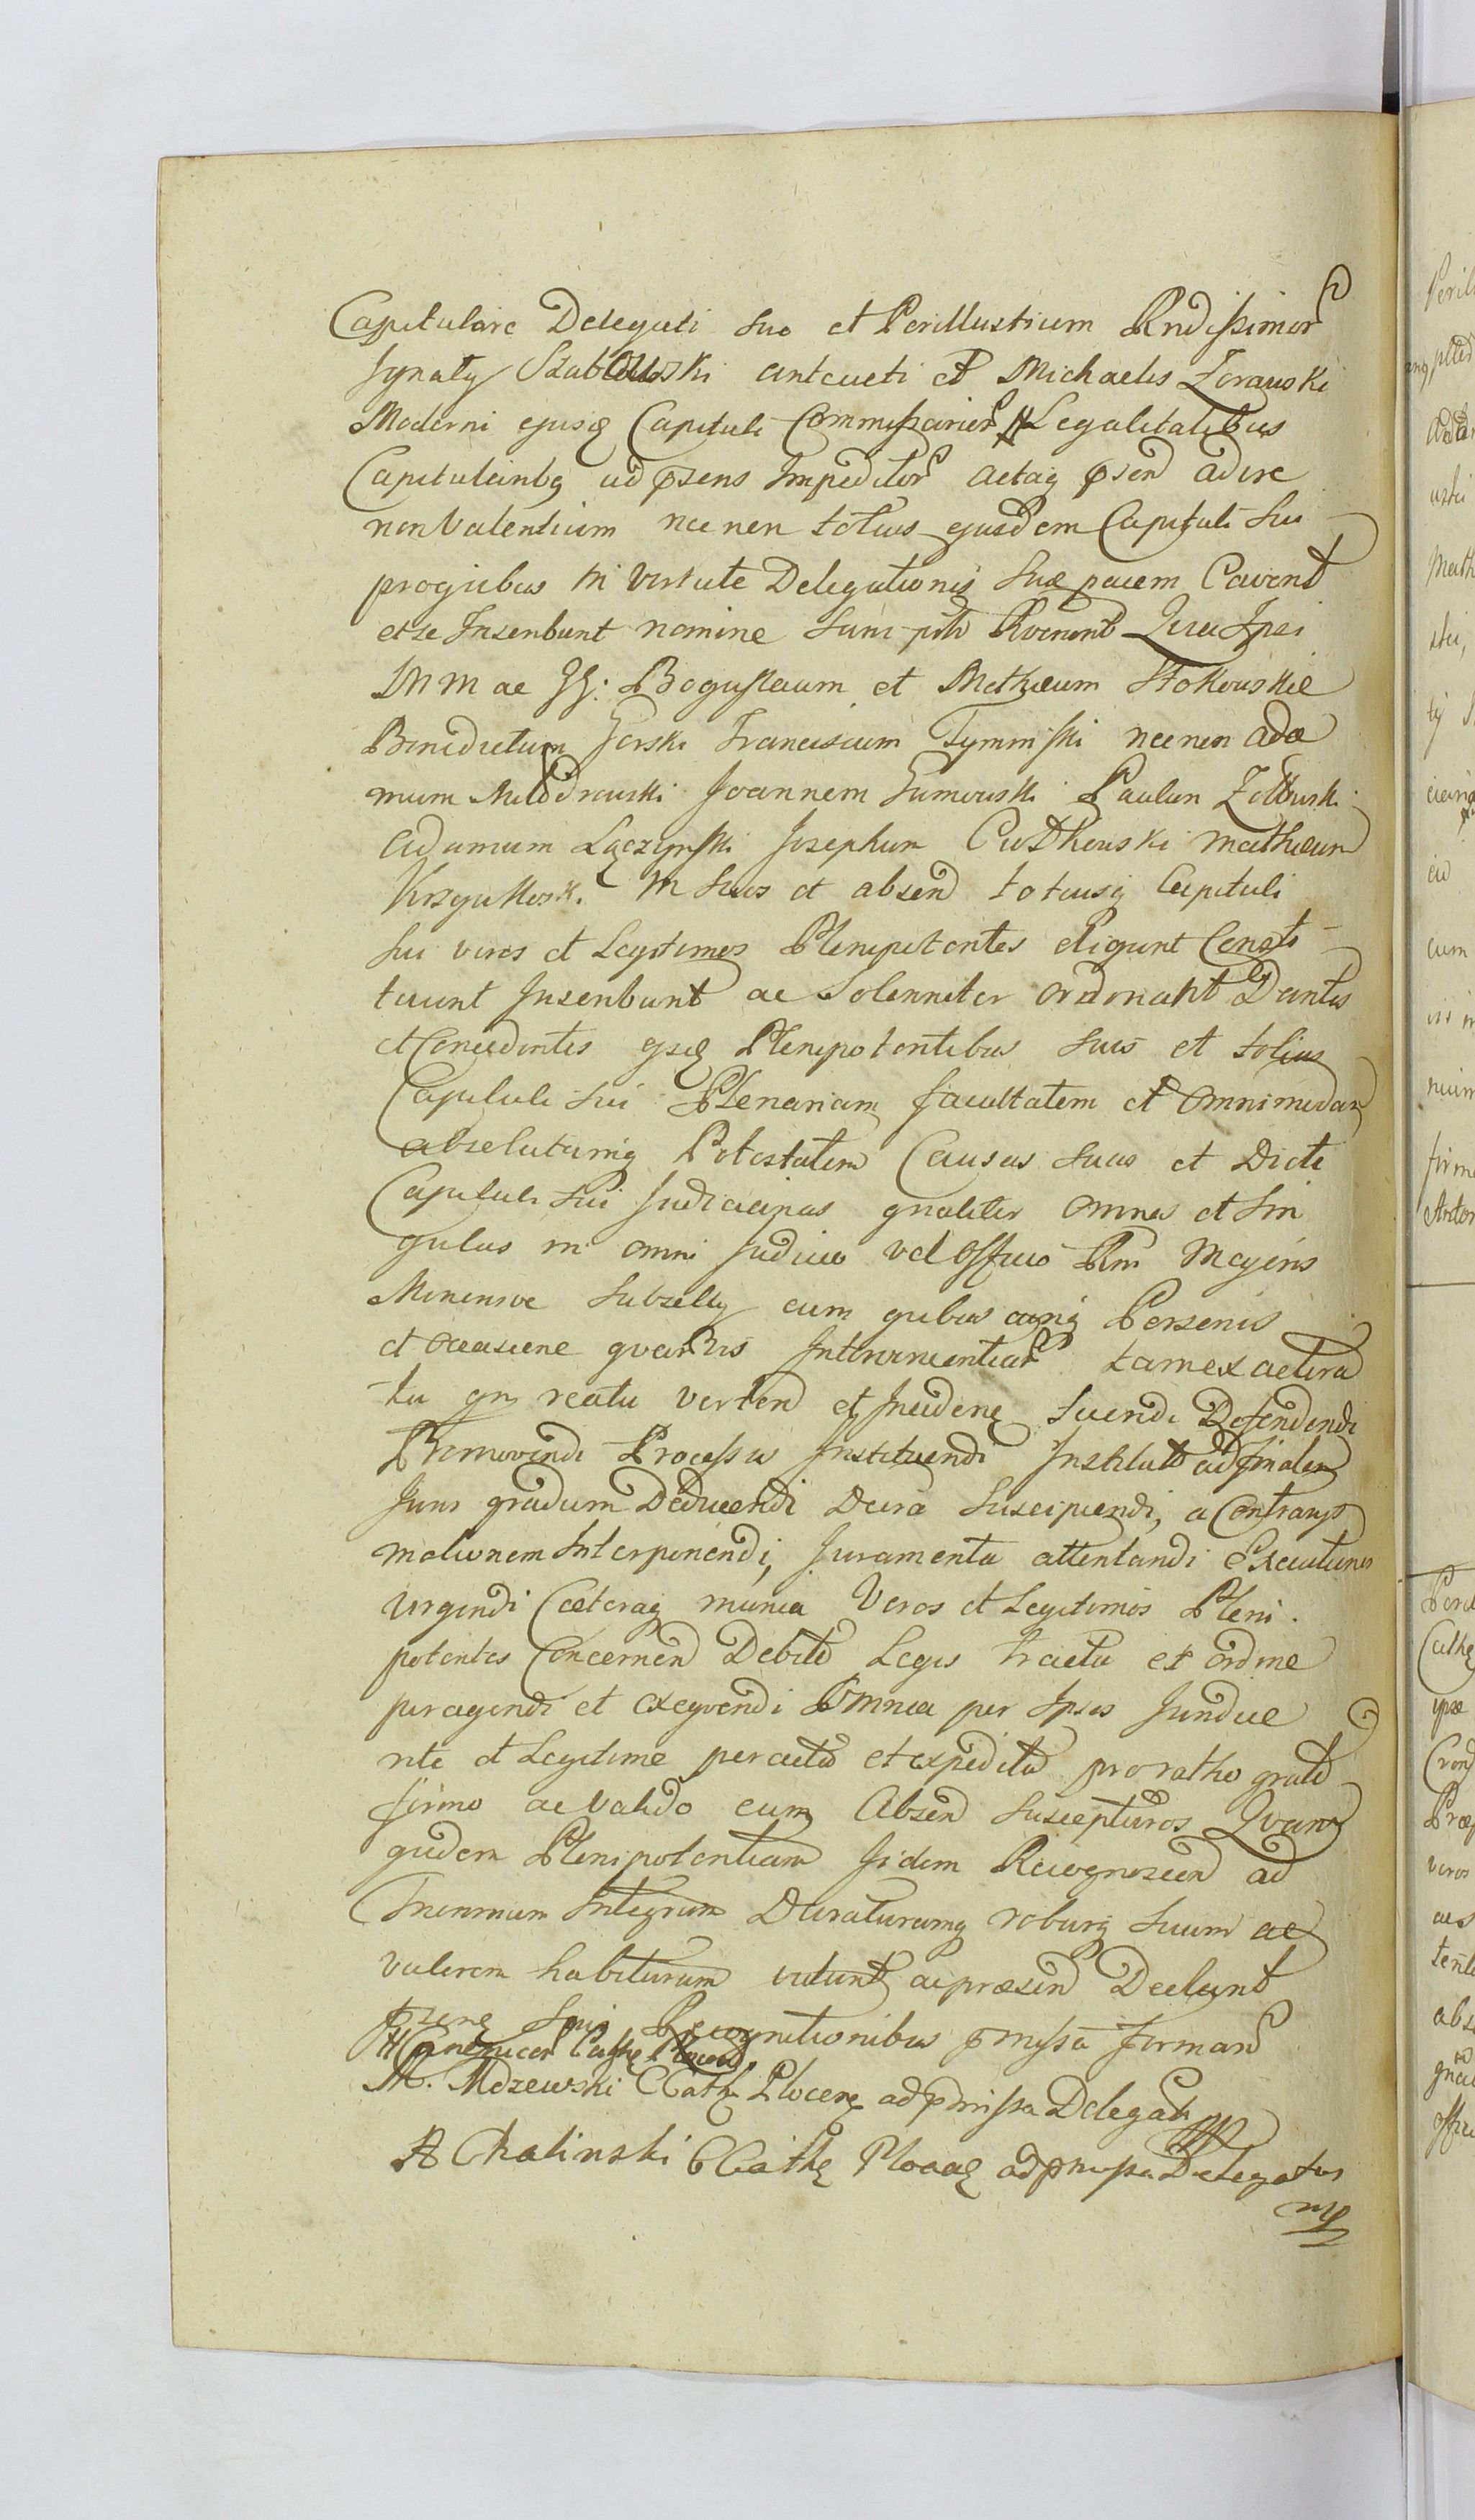 Capitulare Delegati suo et Perillustrium Rndissimor
Ignaty Szablowski antcacti et Michaelis Zorawski
Moderni ejusq Capituli Commissarior # Legalitatibus
Capitularibq ad psens Impeditor actaq psen adire
non Valentium nec non totius ejusdem Capituli sui
pro quibus in virtute Delegationis suae pacem Cavent
et se Inscribunt nomine suam Jura Ipsi
MM ac GG: Boguslaum et Mathaeum Stokowskie
Benedictum Gorski Franciscum Tymiński nec non Ada
mum Modrowski Joannem Gumowski Paulum Zołtowski
Adamum Łączyński Josephum Mathaeum
in suos et absen totiusq Capituli
sui veros et Legitimos Plenipotentes eligunt Consti
tuunt Inscribunt ac Solenniter ordinant Dantes
et Concedentes ejsq Plenipotentibus suis et totius
Capituli sui Plenariam facultatem et omnimodam
absolutamq Potestatem Causas suas et Dicti
Capituli sui Judiciarias gnaliter omnes et sin
gulas in omni Judicio vel Officio Rni Majoris
Minorisve Subselly cum quibus cunq Personis
et occasione quarumvis Intervenientiar tam ex actora
tu qm reatu verten et Inciden suendi Defendendi
Promovendi Processus Instituendi Institut ad finalem
Juris gradum Deducendi Decra suscipiendi, a Contrarys
motionem Interponendi, Juramenta attentandi Executiones
urgendi Caeteraq munia Veros et Legitimos Pleni
potentes Concernen Debito Legis tractu et ordine
peragendi et exequendi Omnia per Ipsos Jundice
rite et Legitime peracta et expedita pro ratho grato
firmo ac valido cum Absen suscepturos Quam
quidem Plenipotentiam Jidem Recognoscen ad
Triennium Integrum Duraturamq roburq suum ac
valorem habituram volunt ac praesen Declarant
Recognitionibus pmissa firman
# Cath
M. Mdzewski CCath Plocen ad pmissa Delegatq
A Chalinski CCath Plocen ad pmissa Delegatus
mp